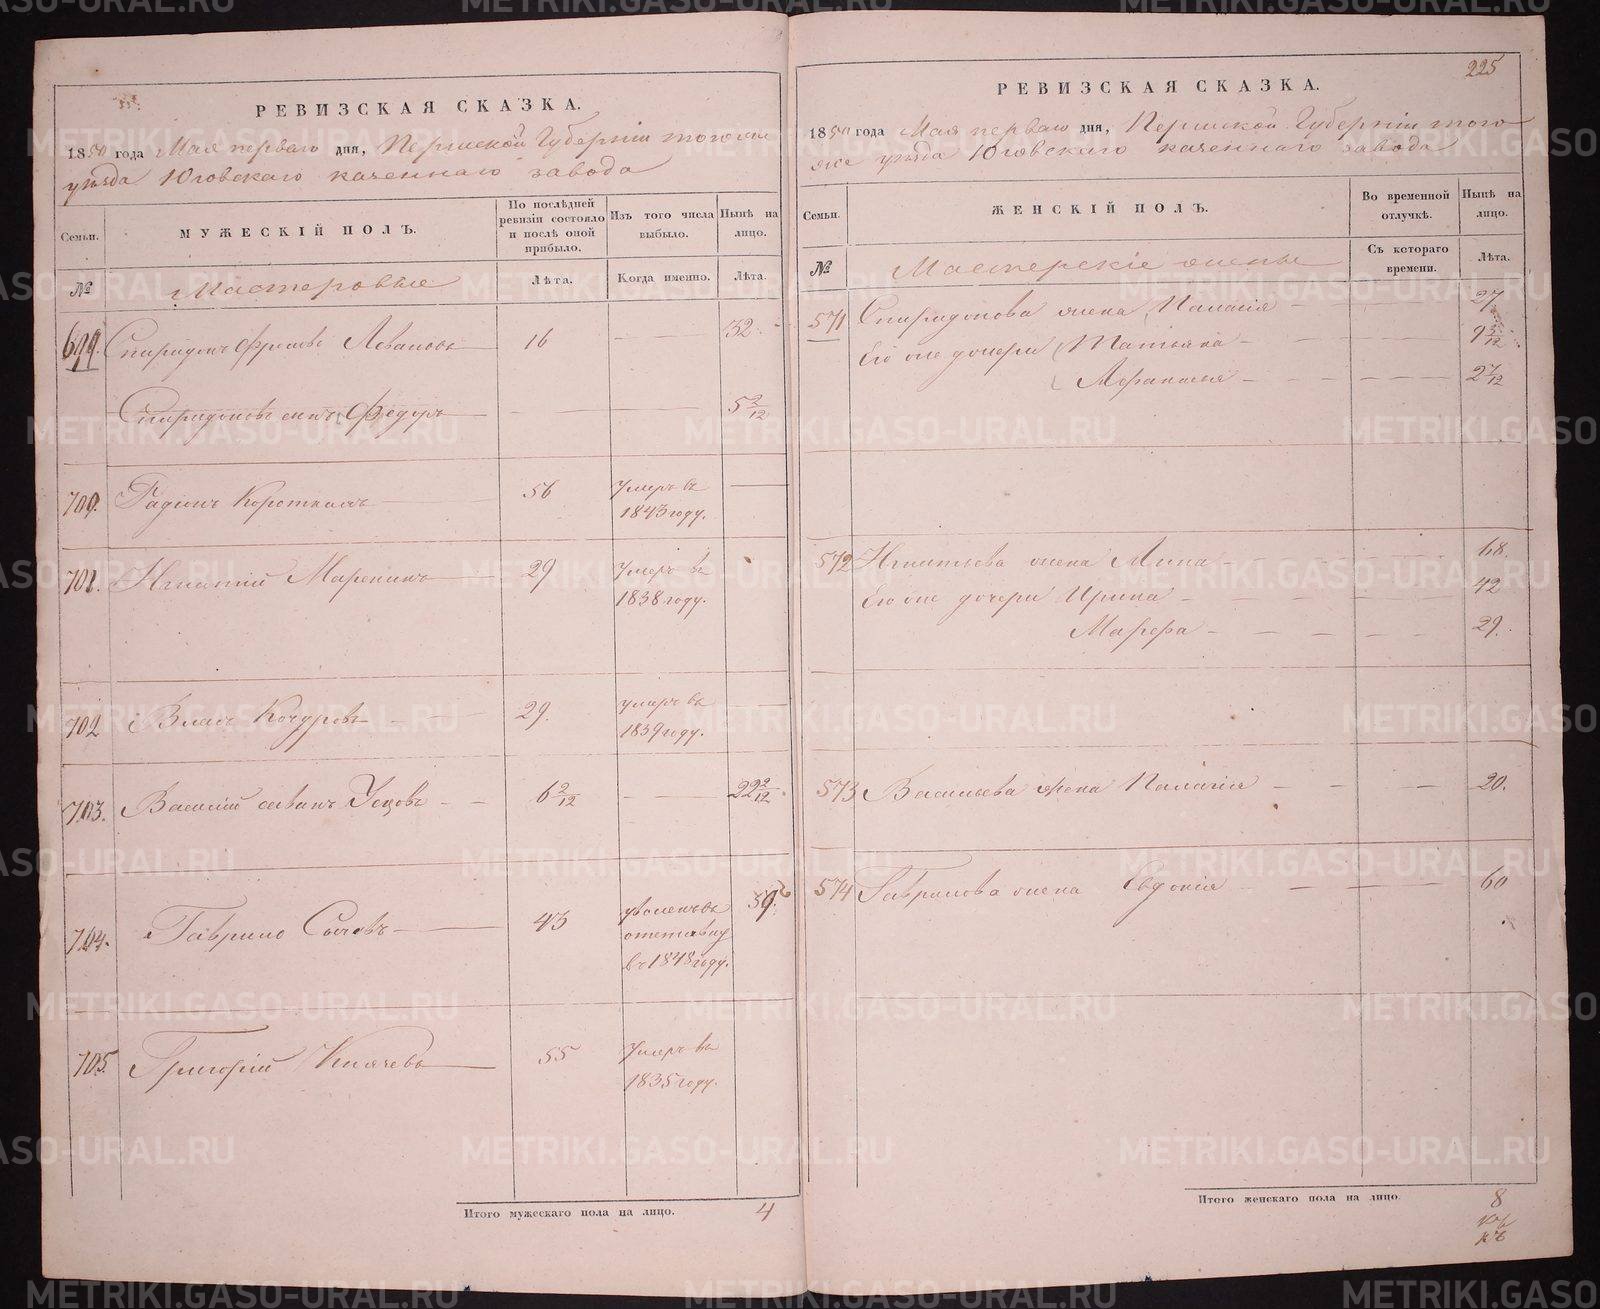 РЕВИЗСКАЯ СКАЗКА.
1850 года Мая перваго дня, Пермской Губерніи того же
уѣзда Юговскаго казеннаго завода
Семьи.
МУЖЕСКІЙ ПОЛЪ.
По послѣдней ревизіи состояло и послѣ оной прибыло.
Изъ того числа выбыло.
Нынѣ на лицо.
№
Мастеровые
Лѣта.
Когда именно.
Лѣта.
699. Спиридонъ 16 32
Спиридоновъ сынъ Федуръ 5 2/12
700. Радіонъ Короткихъ 56 Умеръ въ
1843 году.
701. Игнатій Маренинъ 29 Умеръ въ
1838 году.
702 Власъ Кочуровъ 29. умеръ въ
1839 году.
703. Василій Усцовъ 6 2/12 22 2/12
704. Гаврило Сычовъ 43 уволенъ въ 59
отставку
въ 1848 году.
705. Григорій Князевъ 55 Умеръ въ
1835 году.
Итого мужескаго пола на лицо. 4
225
РЕВИЗСКАЯ СКАЗКА.
1850 года Мая перваго дня, Пермской Губерніи того
же уѣзда Юговскаго казеннаго завода
Семьи.
ЖЕНСКІЙ ПОЛЪ.
Во временной отлучкѣ.
Нынѣ на лицо.
№
Мастерскіе жены
Съ котораго времени.
Лѣта.
571 Спиридонова жена Палагія 27
Его же дочери Татьяна 9 5/12
Афанасья 2 7/12
572 Игнатьева жена Анна 68.
Его же дочери Ирина 42
Марфа 29.
573 Васильева жена Палагія 20.
574 Гаврилова жена Евдокія 60
Итого женскаго пола на лицо. 8
METRIKI.GASO-URAL.RU